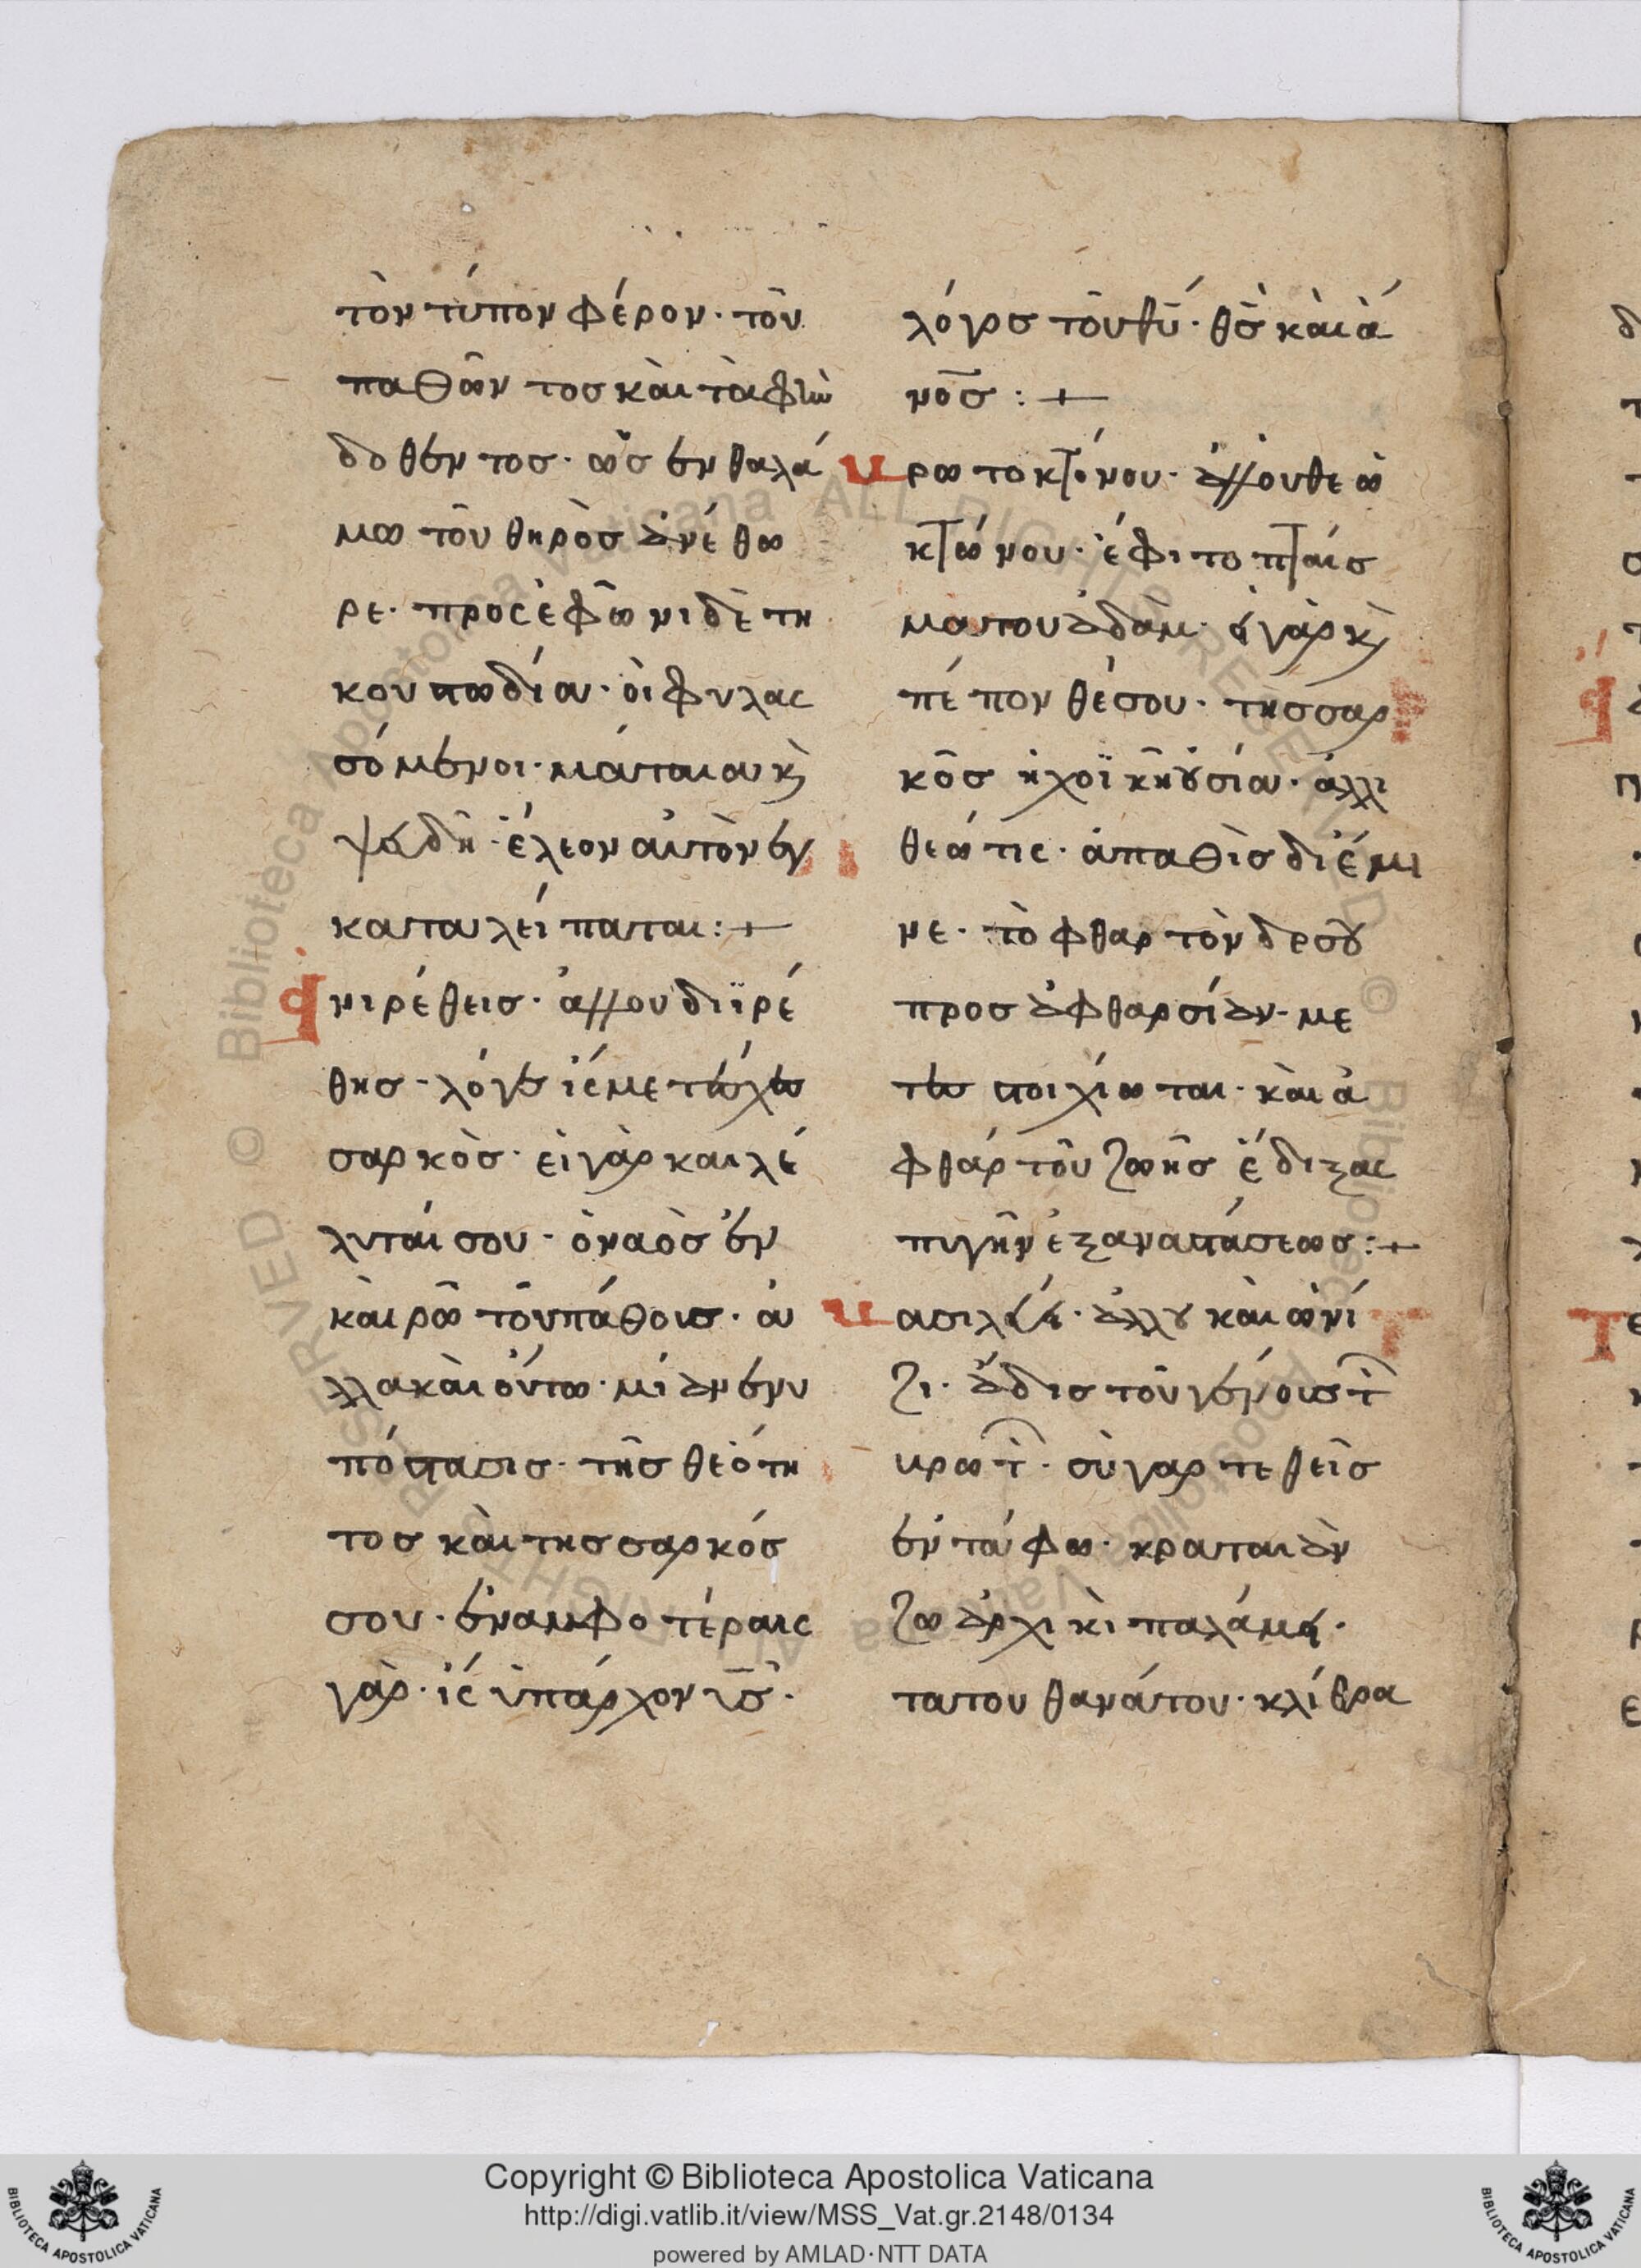 τὸν τύπον φέρον· τοῦ
παθῶν τοσ καὶ ταφὴν
δοθέν τοσ· ὡσ ἐν θαλά
μω τοῦ θηρὸσ ἀνέ θο
ρε· προσ ἐφῶ νι δὲ τη
κουστωδία· ὁι φυλασ
σό μενοι· μάταια κ̀
ψευδῆ· ἔλεον αὐτὸν ἐγ
καταλεί πατε :+
Ἀνιρέ θεισ· ἀλλ' ου διϊρέ
θησ· λόγε ἧσ μετέσχεσ
σαρκὸσ· εἰ γὰρ και λέ
λυταί σου· ὁ ναὸσ ἐν
καὶ ρῶ τοῦ πάθουσ· ἀ
λλα καὶ ὅυτω· μία ἦν υ
πόστασισ· τῆσ θεότη
τοσ καὶ τησ σαρκόσ
σου· ἐν αμφο τέραισ
γάρ· ἧσ ὑπάρχον υσ·
λόγοσ τοῦ θῦ· θσ̄ καὶ ἀ
νοσ̄ :+
Βρωτοκτόνου· ἀλλ' ου θεω
κτώνου· ἔφι το πταίσ
μα του ἀδὰμ· εἰ γὰρ κ̀
πέ πον θέ σου· τησ σαρ
κὸσ ἡ χοϊκὴ ουσία· ἀλλ' ι
θεώ τισ· ἀπαθὴσ διέμι
νε· τὸ φθαρ τὸν δε σοῦ
προσ ἀφθαρσίαν· με
τεστοιχίω ται· καὶ ἀ
φθάρ του ζωῆσ ἔδιξασ
πιγὴν ἐξ αναστάσεωσ :+
Βασιλεύει· ἀλλ' ου καὶ ωνί
ζι· ἅδισ τοῦ γένουσ τ̑
βρωτ̑· σὺ γαρ τεθεὶσ
ἐν τάφω· κραταιὲ
ζωαρχικὶ παλάμη·
τα του θανάτου· κλίθρα